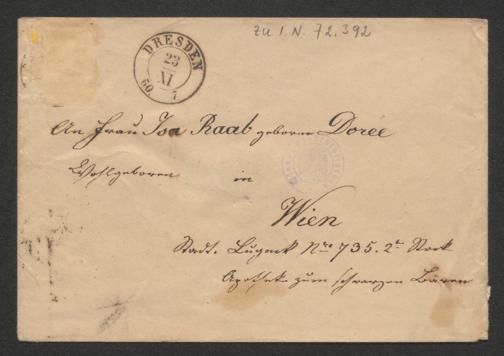 zu I. N. 72.392
DRESDEN
23
XI
60. 7
An Frau Isa Raab geborne Dorée
Wohlgeboren in
Wien
Stadt. Lugeck Nro 735. 2t Stock
Apotheke zum schwarzen Bären